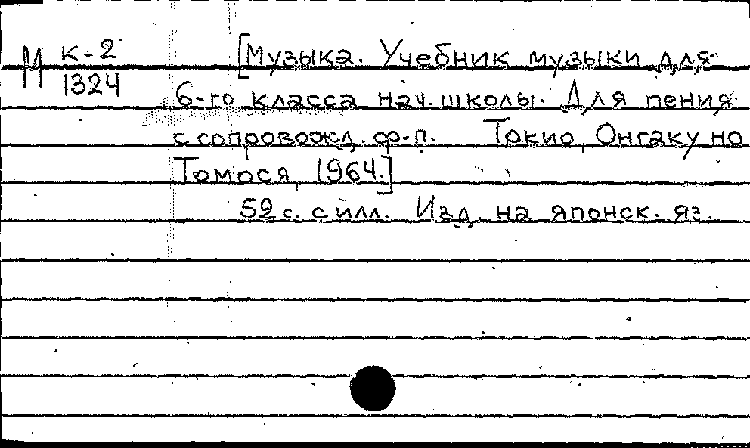 М К-2
1324
[Музыка. Учебник музыки для
6-го класса нач. школы. Для пения
с сопровожд. ф-п. Токио, Онгаку но
Томося, 1964.]
52 с. с илл. Изд. на японск. яз.